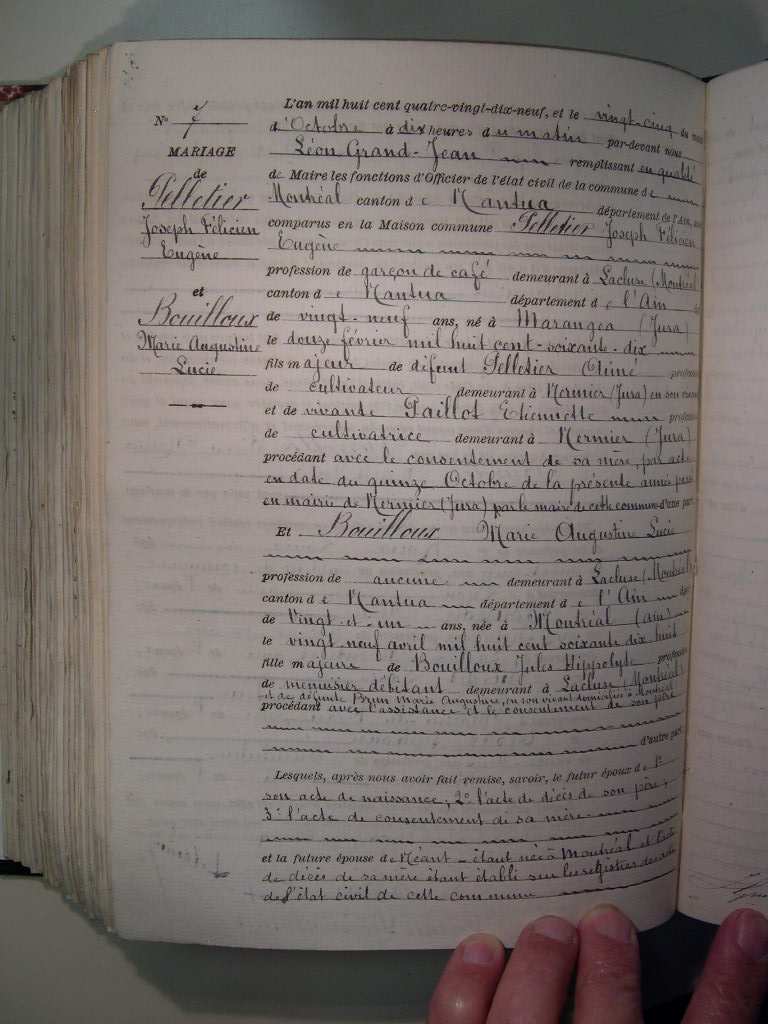 N° 7
MARIAGE
de
Pelletier
Joseph Félicien
Eugène
et
Bouilloux
Marie Augustine
Lucie
L'an mil huit cent quatre-vingt-dix-neuf, et le vingt-cinq du mois
d'Octobre à dix heures du matin par-devant nous
Léon Grand-Jean remplissant en qualité
de Maire les fonctions d'Officier de l'état civil de la commune de
Montréal canton de Nantua département de l'Ain,
comparus en la Maison commune Pelletier Joseph Félicien
Eugène
profession de garçon de café demeurant à Lacluse (Montréal)
canton de Nantua département de l'Ain
de vingt-neuf ans, né à Marangea (Jura)
le douze février mil huit cent-soixante-dix
fils majeur de défunt Pelletier Aimé profession
de cultivateur demeurant à Mermier (Jura) en son vivant
et de vivante Paillot Etiennette profession
de cultivatrice demeurant à Mermier (Jura)
procédant avec le consentement de sa mère, par acte
en date du quinze Octobre de la présente année passé
en mairie de Mermier (Jura) par le maire de cette commune d'une part
Et Bouilloux Marie Augustine Lucie
profession de aucune demeurant à Lacluse (Montréal)
canton de Nantua département de l'Ain
de Vingt-et-un ans, née à Montréal (Ain)
le vingt neuf avril mil huit cent soixante dix huit
fille majeure de Bouilloux Jules Hippolyte profession
de menuisier débitant demeurant à Lacluse (Montréal)
et de défunte Brun Marie Augustine, en son vivant domiciliée à Montréal
procédant avec l'assistance et le consentement de son père
d'autre part
Lesquels, après nous avoir fait remise, savoir, le futur époux de 1°
son acte de naissance, 2° l'acte de décès de son père,
3° l'acte de consentement de sa mère
et la future épouse de Néant étant née à Montréal et l'acte
de décès de sa mère étant établi sur les registres des actes
de l'état civil de cette commune